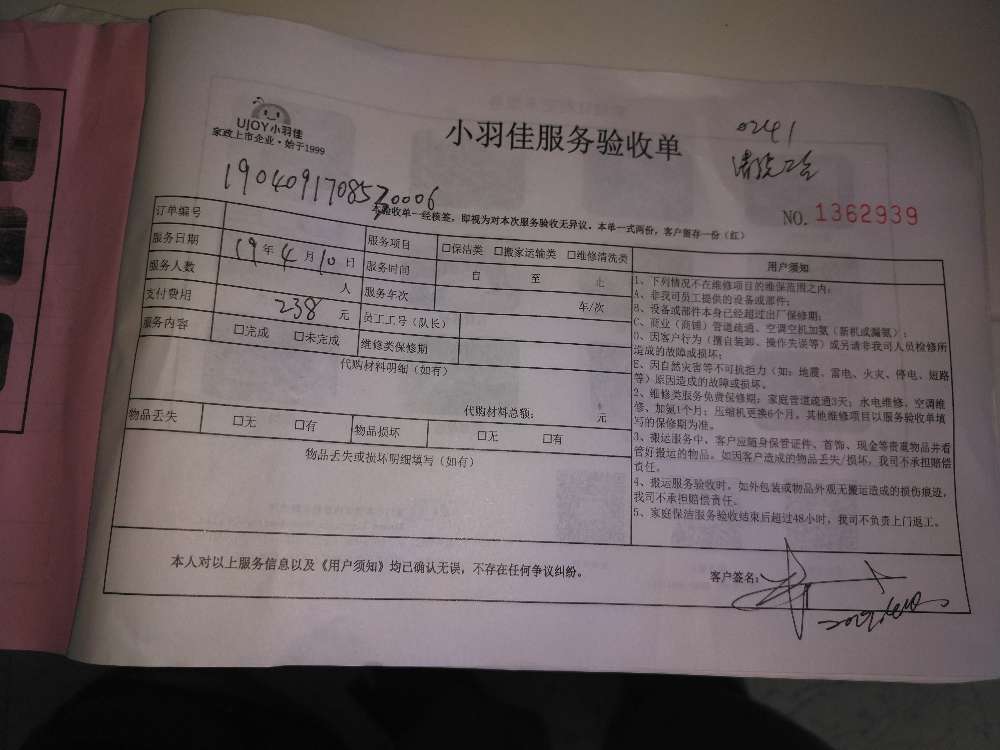 UJOY小羽佳
家政上市企业·始于1999
小羽佳服务验收单
0241
NO. 1362939
本验收单一经核签，即视为对本次服务验收无异议。本单一式两份，客户留存一份（红）
订单编号
服务日期 19 年 4 月 10 日
服务人数 人
支付费用 238 元
服务内容 □完成 □未完成
服务项目 □保洁类 □搬家运输类 □维修清洗类
服务时间 自 至 止
服务车次 车/次
员工工号（队长）
维修类保修期
代购材料明细（如有）
代购材料总额： 元
物品丢失 □无 □有 物品损坏 □无 □有
物品丢失或损坏明细填写（如有）
用户须知
1、下列情况不在维修项目的维保范围之内：
A、非我司员工提供的设备或部件；
B、设备或部件本身已经超过出厂保修期；
C、商业（商铺）管道疏通、空调空机加氨（新机或漏氨）；
D、因客户行为（擅自装卸、操作失误等）或另请非我司人员检修所
造成的故障或损坏；
E、因自然灾害等不可抗拒力（如：地震、雷电、火灾、停电、短路
等）原因造成的故障或损坏。
2、维修类服务免费保修期：家庭管道疏通3天；水电维修、空调维
修、加氨1个月；压缩机更换6个月。其他维修项目以服务验收单填
写的保修期为准。
3、搬运服务中，客户应随身保管证件、首饰、现金等贵重物品并看
管好搬运的物品。如因客户造成的物品丢失/损坏，我司不承担赔偿
责任。
4、搬运服务验收时，如外包装或物品外观无搬运造成的损伤痕迹，
我司不承担赔偿责任。
5、家庭保洁服务验收结束后超过48小时，我司不负责上门返工。
本人对以上服务信息以及《用户须知》均已确认无误，不存在任何争议纠纷。
客户签名：